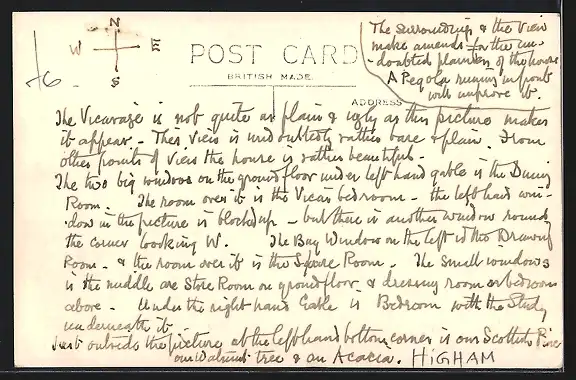 N
W E
S
6
POST CARD
BRITISH MADE.
ADDRESS
The Surroundings & the View
make amends for the un-
-doubted plainness of the house
A Pegola running in front
will improve it.
The Vicarage is not quite as plain & ugly as this picture makes
it appear. This view is undoubtedly rather bare & plain. From
other points of View the house is rather beautiful.
The two big windows on the ground floor under left hand gable is the Dining
Room. The room over it is the Vicar's bedroom - the left hand win-
dow in the picture is blocked up - but there is another window round
the corner looking W. The Bay Window on the left is the Drawing
Room - & the room over it is the Spare Room. The small windows
in the middle are Store Room on ground floor & dressing room or bedroom
above. Under the right hand Gable is Bedroom with the Study
underneath it.
Just outside the picture at the left hand bottom corner is our Scottish Pine
our Walnut tree & an Acacia. HIGHAM